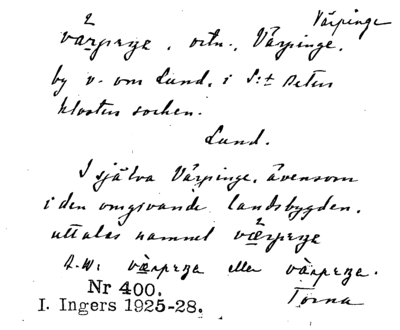 Värpinge
2
värpıŋa, ortn., Värpinge,
by v. om Lund, i S:t Petri
klosters socken.
Lund.
I själva Värpinge, ävensom
i den omgivande landsbygden,
uttalas namnet
d.v.s. eller
Nr 400. Torna
I. Ingers 1925-28.